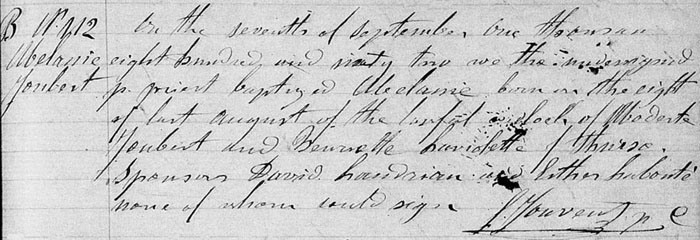 B N 412 On the seventh of september one thousan
Melanie eight hundred and sixty two we the undersigned
Joubert p. priest baptized Melanie born on the eight
of last august of the lawful wedlock of Moderte
Joubert and Henriette Laviolette of thurso.
Sponsors David Landrian and Esther Labonté
none of whom could sign J. Jouvent p c